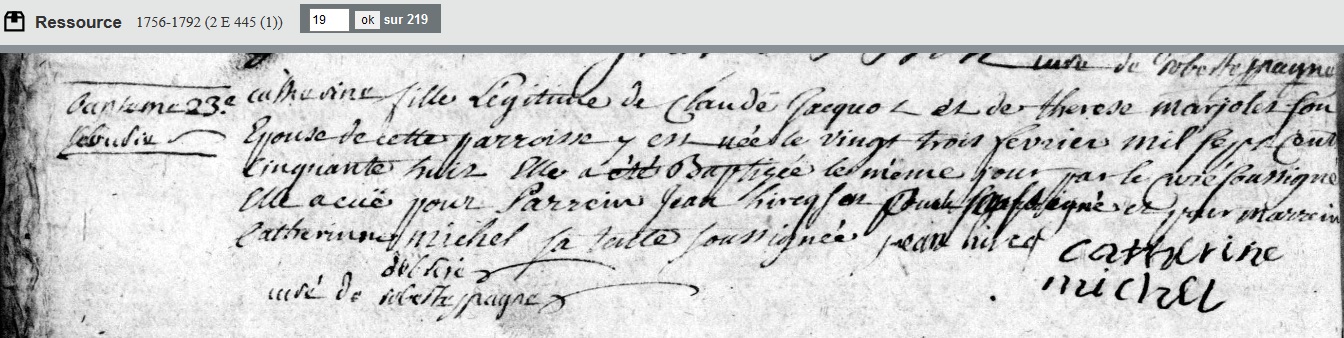 Ressource 1756-1792 (2 E 445 (1)) 19 ok sur 219
curé de robertespagne
Bapteme 23e
febvrier
catherine fille Légitime de Claude Jacquot et de therese marjolet son
Epouse de cette parroisse y est née le vingt trois fevrier mil sept Cent
Cinquante huit Elle a été Baptizée le même jour par le curé soussigné
Elle a eüe pour Parrein Jean hireq son et pour marreine
Catherinne michel sa tente soussignée jean hireq catherine
michel
curé de robertespagne